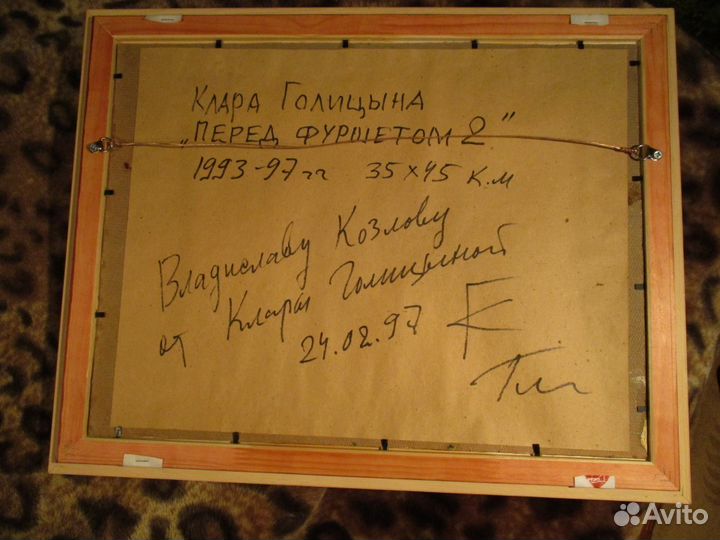 Клара Голицына
„Перед фуршетом 2"
1993-97гг 35х45 к.м
Владиславу Козлову
от Клары Голицыной
24.02.97
Avito